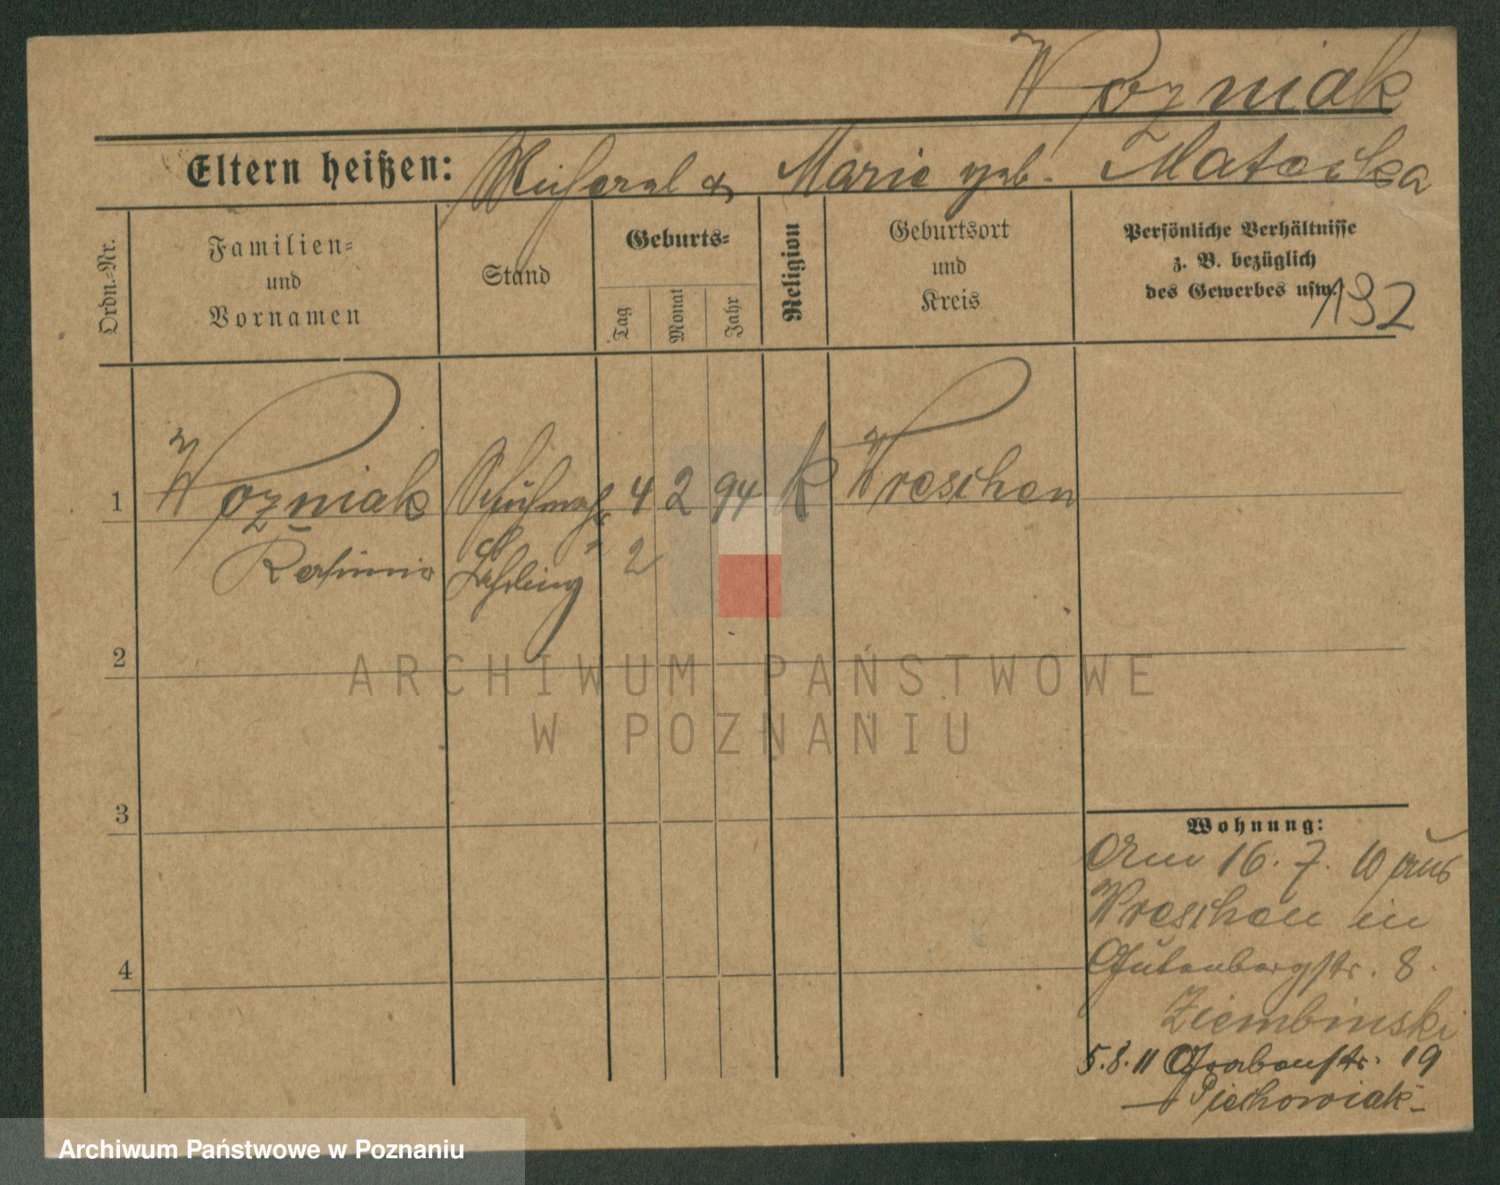 Wozniak
Eltern heißen: Michael & Marie geb. Matecka
Ordn.-Nr.
Familien-
und
Vornamen
Stand
Geburts-
Tag
Monat
Jahr
Religion
Geburtsort
und
Kreis
Persönliche Verhältnisse
z. B. bezüglich
des Gewerbes usw.
132
1 Wozniak 4 2 94 K Wreschen
Kasimir Lehrling 2
2
3
4
Wohnung:
Am 16. 7. 10 aus
Wreschen in
Gutenbergstr. 8.
Ziembinski
5.8.11 Grabenstr. 19
Piechowiak
ARCHIWUM PAŃSTWOWE
W POZNANIU
Archiwum Państwowe w Poznaniu